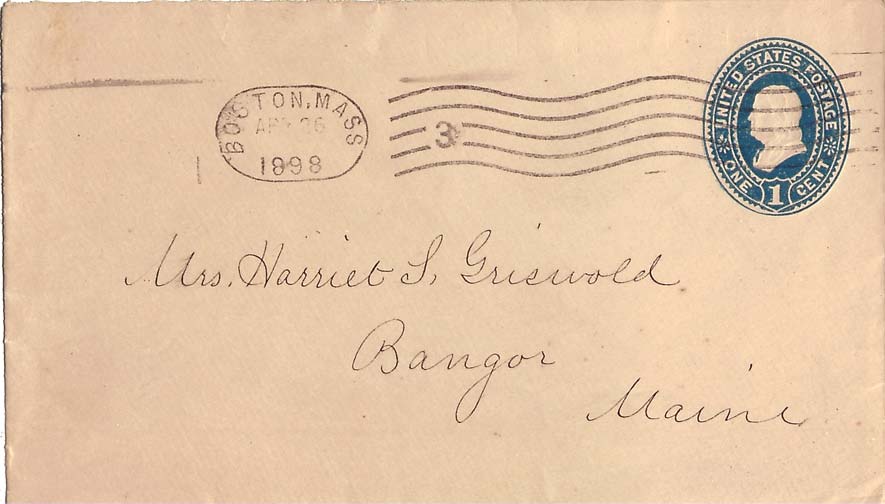 BOSTON, MASS
1898
3
UNITED STATES POSTAGE
ONE 1 CENT
Mrs. Harriet S. Griswold
Bangor
Maine